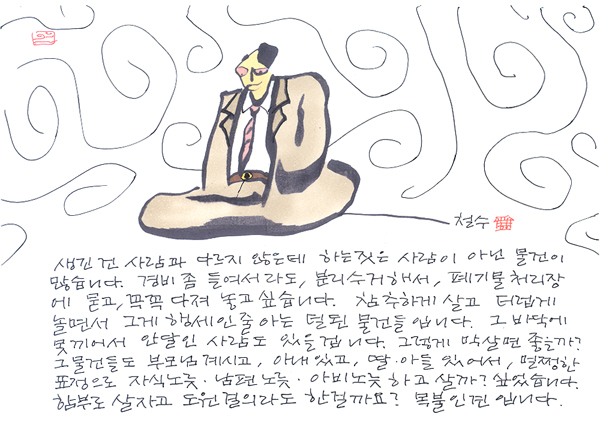 철수
생긴 건 사람과 다르지 않은데 하는짓은 사람이 아닌 물건이
많습니다. 경비 좀 들여서라도, 분리수거해서, 폐기물처리장
에 묻고, 꼭꼭 다져 놓고 싶습니다. 참 추하게 살고 더럽게
놀면서 그게 행세인줄 아는 덜된 물건들입니다. 그 바닥에
못끼어서 안달인 사람도 있을겁니다. 그렇게 막살면 좋을까?
그물건들도 부모님계시고, 아내있고, 딸·아들 있어서, 멀쩡한
표정으로 자식노릇·남편노릇·아비노릇 하고 살까? 싶었습니다.
함부로 살자고 도원결의라도 한걸까요? 목불인견입니다.